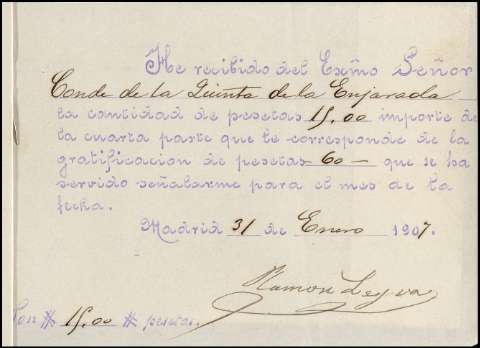 He recibido del Exmo Señor
Conde de la Quinta de la Enjarada
la cantidad de pesetas 15,00 importe de
la cuarta parte que le corresponde de la
gratificacion de pesetas 60 — que se ha
servido señalarme para el mes de la
fecha.
Madrid 31 de Enero 1907.
Ramon Leyva
Son # 15,00 # pesetas.